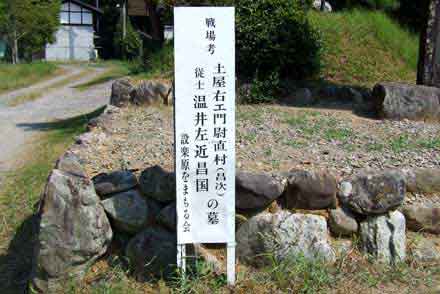 戦場考
土屋右エ門尉直村(昌次)の墓
従士 温井左近昌国
設楽原をまもる会